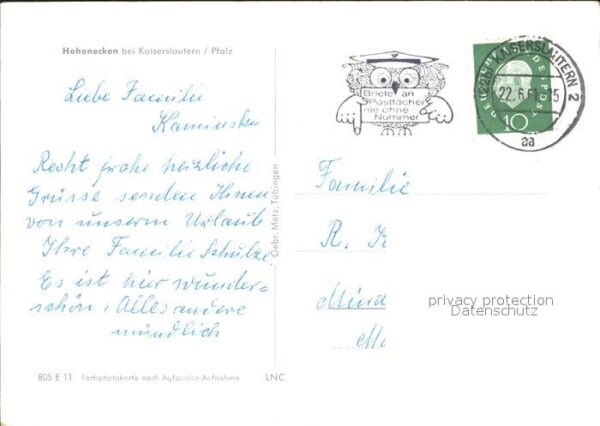 Hohenecken bei Kaiserslautern / Pfalz
Liebe Familie
Kaminsku
Recht frohe herzliche
Grüsse senden Ihnen
von unserm Urlaub
Ihre Familie Schulze.
Es ist hier wunder=
schön, Alles andere
mündlich
805 E 11 Farbphotokarte nach Agfacolor-Aufnahme LNC
Gebr. Metz, Tübingen
Briefe an
Postfächer
nie ohne
Nummer
(22b) KAISERSLAUTERN 2
22.6.61-15
aa
DEUTSCHE BUNDESPOST
10
Familie
R. K
Mind
privacy protection
Datenschutz